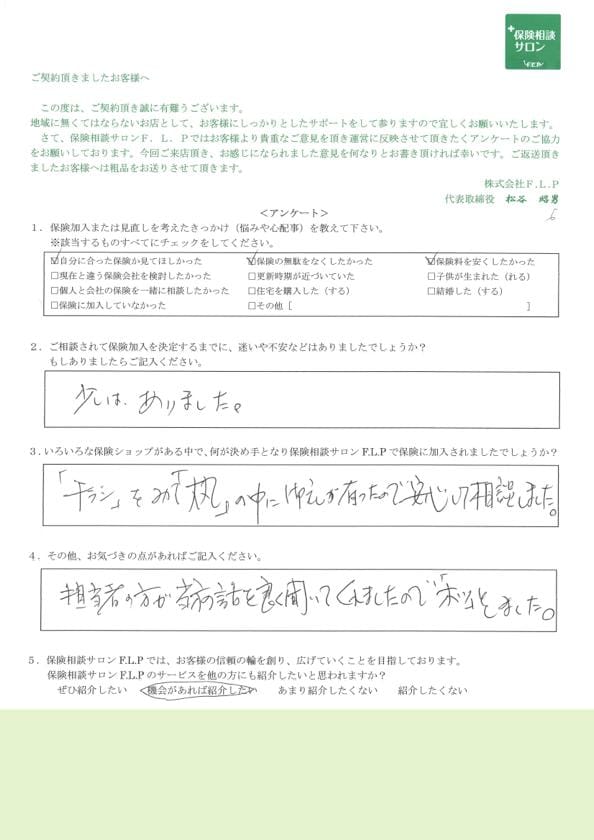 保険相談
サロン
F.L.P
ご契約頂きましたお客様へ
この度は、ご契約頂き誠に有難うございます。
地域に無くてはならないお店として、お客様にしっかりとしたサポートをして参りますので宜しくお願いいたします。
さて、保険相談サロンF．L．Pではお客様より貴重なご意見を頂き運営に反映させて頂きたくアンケートのご協力
をお願いしております。今回ご来店頂き、お感じになられました意見を何なりとお書き頂ければ幸いです。ご返送頂き
ましたお客様へは粗品をお送りさせて頂きます。
株式会社F.L.P
代表取締役 松谷 昭男
＜アンケート＞
1．保険加入または見直しを考えたきっかけ（悩みや心配事）を教えて下さい。
※該当するものすべてにチェックをしてください。
☑自分に合った保険か見てほしかった ☑保険の無駄をなくしたかった ☑保険料を安くしたかった
□現在と違う保険会社を検討したかった □更新時期が近づいていた □子供が生まれた（れる）
□個人と会社の保険を一緒に相談したかった □住宅を購入した（する） □結婚した（する）
□保険に加入していなかった □その他［ ］
2．ご相談されて保険加入を決定するまでに、迷いや不安などはありましたでしょうか？
もしありましたらご記入ください。
少しは、ありました。
3．いろいろな保険ショップがある中で、何が決め手となり保険相談サロンF.L.Pで保険に加入されましたでしょうか？
「チラシ」をみて の中に が有ったので安心して相談しました。
4．その他、お気づきの点があればご記入ください。
担当者の方が の話を良く聞いてくれましたので ました。
5．保険相談サロンF.L.Pでは、お客様の信頼の輪を創り、広げていくことを目指しております。
保険相談サロンF.L.Pのサービスを他の方にも紹介したいと思われますか？
ぜひ紹介したい 機会があれば紹介したい あまり紹介したくない 紹介したくない